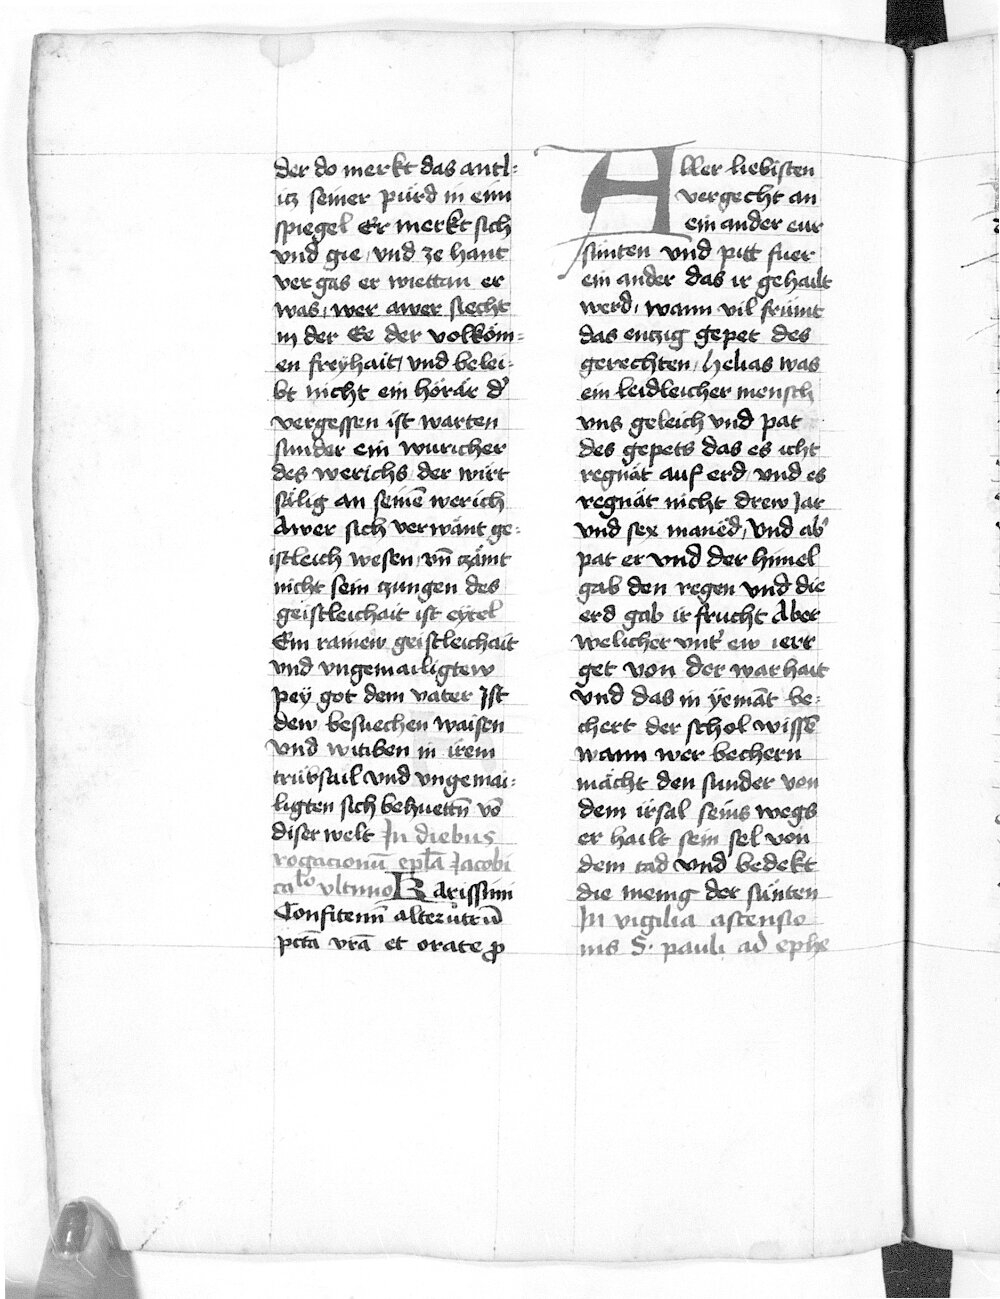 der do merkt das antl-
itz seiner pürd in eim
spiegel Er merkt sich
vnd gie vnd ze hant
vergas er wiettan er
was, wer awer siecht
in der Ee der volköm-
en freyhait, vnd belei-
bt nicht ein hörär d'
vergessen ist warten
sunder ein würicher
des werichs der wirt
sälig an seinē werich
Awer sich verwänt ge-
istleich wesen, vn̄ czämt
nicht sein czungen des
geistleichait ist eytel
Ein rainew geistleichait
vnd vngemailigtew
pey got dem vater Jst
dew besuechen waisen
vnd witiben in irem
trübsail vnd vngemai-
ligten sich behuettn̄ vō
diser welt Jn diebus
rogacionū epl̄a Jacobi
calo vltimo Karissimi
Confitemī alterutrū
pctā vrā et orate ꝓ
Aller liebisten
vergecht an
ein ander eur
sünten vnd pitt fuer
ein ander das ir gehailt
werd, wann vil frümt
das enczig gepet des
gerechten, Helias was
ein leidleicher mensch
vns geleich vnd pat
des gepets das es icht
regnät auf erd, vnd es
regnät nicht drew Jar
vnd sex manēd, Vnd ab'
pat er vnd der himel
gab den regen vnd die
erd gab ir frucht Aber
welicher vnt' ew ierr
get von der warhait
vnd das in yemāt be-
chert der schol wissē
wann wer bechern
mächt den sunder von
dem irsal seins wegs
er hailt sein sel von
dem tad vnd bedekt
die menig der sünten
Jn vigilia ascensio
nis S. pauli ad ephe